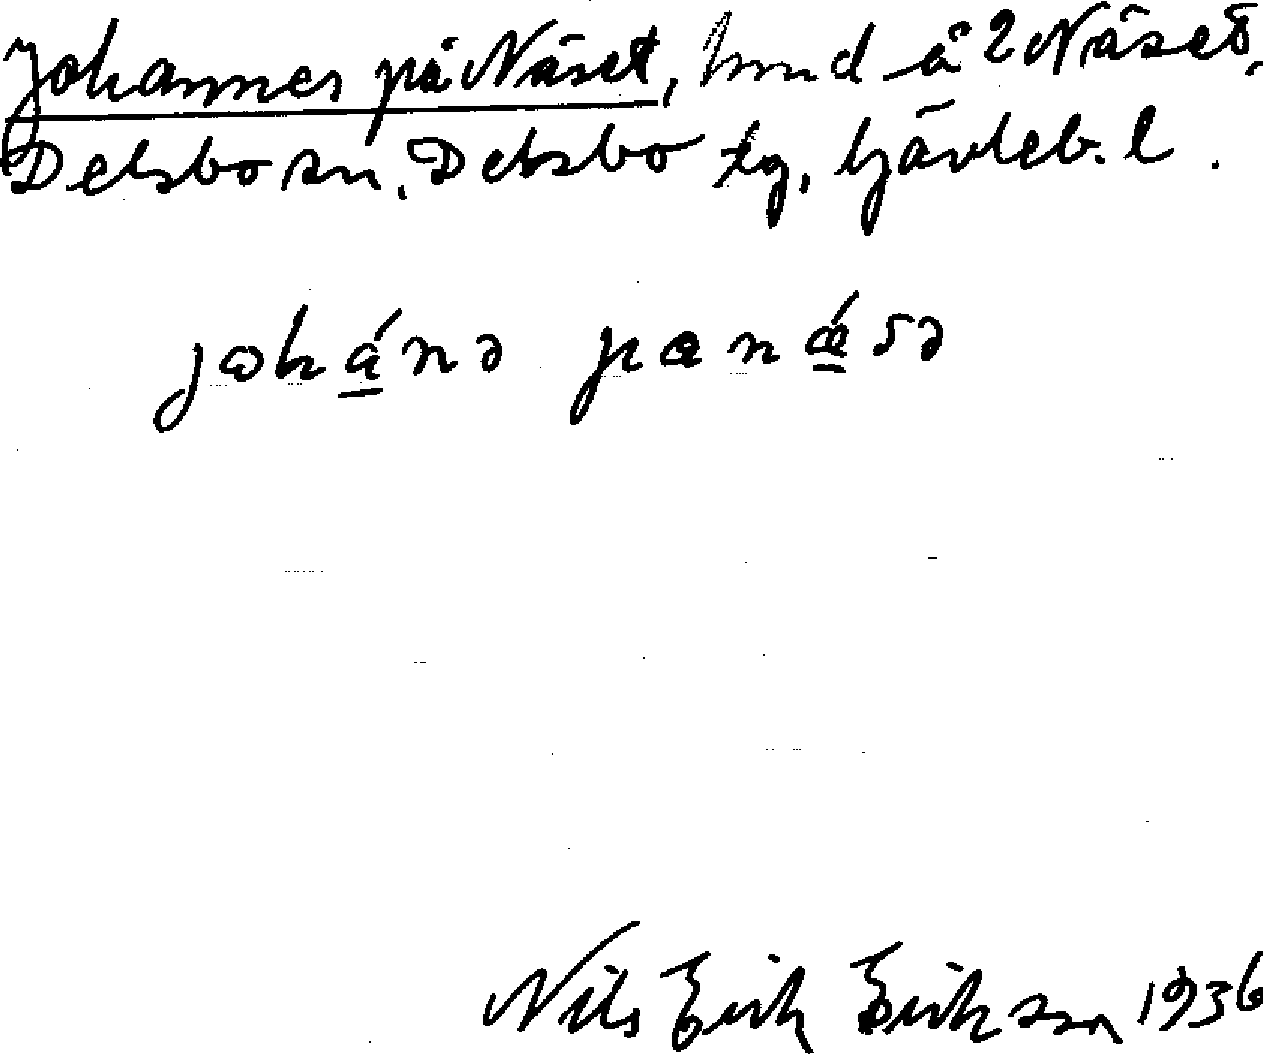 Johannes på Näset, hmd å 2 Näset,
Delsbo sn, Delsbo tg, Gävleb. l.
johánə pænǽsə
Nils Erik Erikson 1936